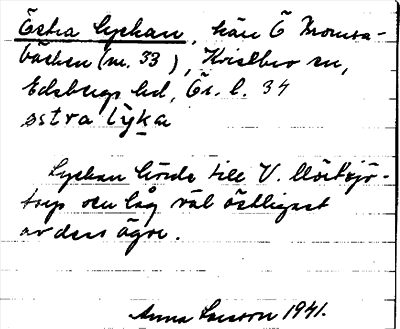 Östra Lyckan, kärr Ö
bäcken (nr. 33), Kvillbro sn,
Edsbergs hd, Ör. l. 34
östra lýka
Lyckan hörde till V. Mörksjö-
torp och låg väl östligast
av dess ägor.
Anna Larsson 1941.